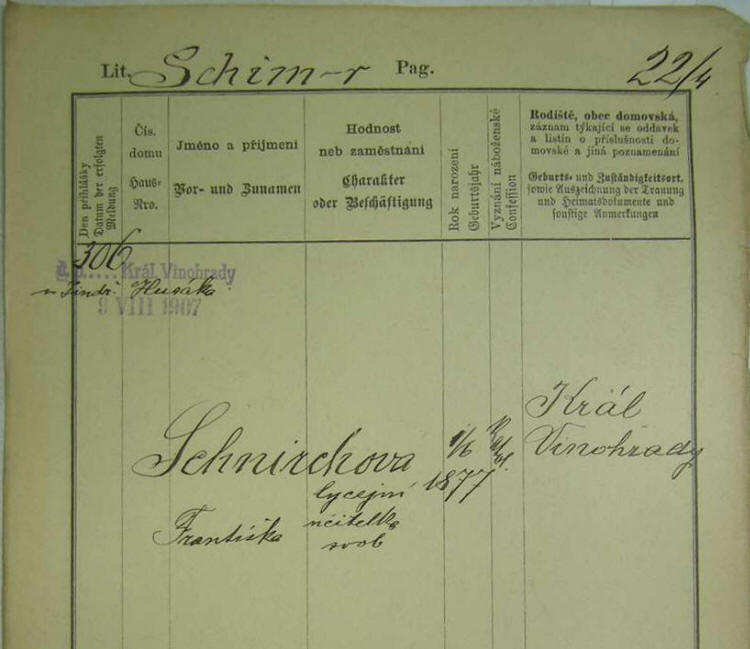 Lit. Schim-r Pag. 22/4
Den přihlášky
Datum der erfolgten
Meldung
Čís.
domu
Haus-
Nro.
Jméno a příjmení
Vor- und Zunamen
Hodnost
neb zaměstnání
Charakter
oder Beschäftigung
Rok narození
Geburtsjahr
Vyznání náboženské
Confession
Rodiště, obec domovská,
záznam týkající se oddavek
a listin o příslušnosti do-
movské a jiná poznamenání
Geburts- und Zuständigkeitsort,
sowie Auszeichnung der Trauung
und Heimatsdokumente und
sonstige Anmerkungen
306
č.p..... Král. Vinohrady
u Jindř. Husáka
9 VIII 1907
Schnirchova
Františka
lycejní
učitelka
svob
1/6
1877
Král
Vinohrady